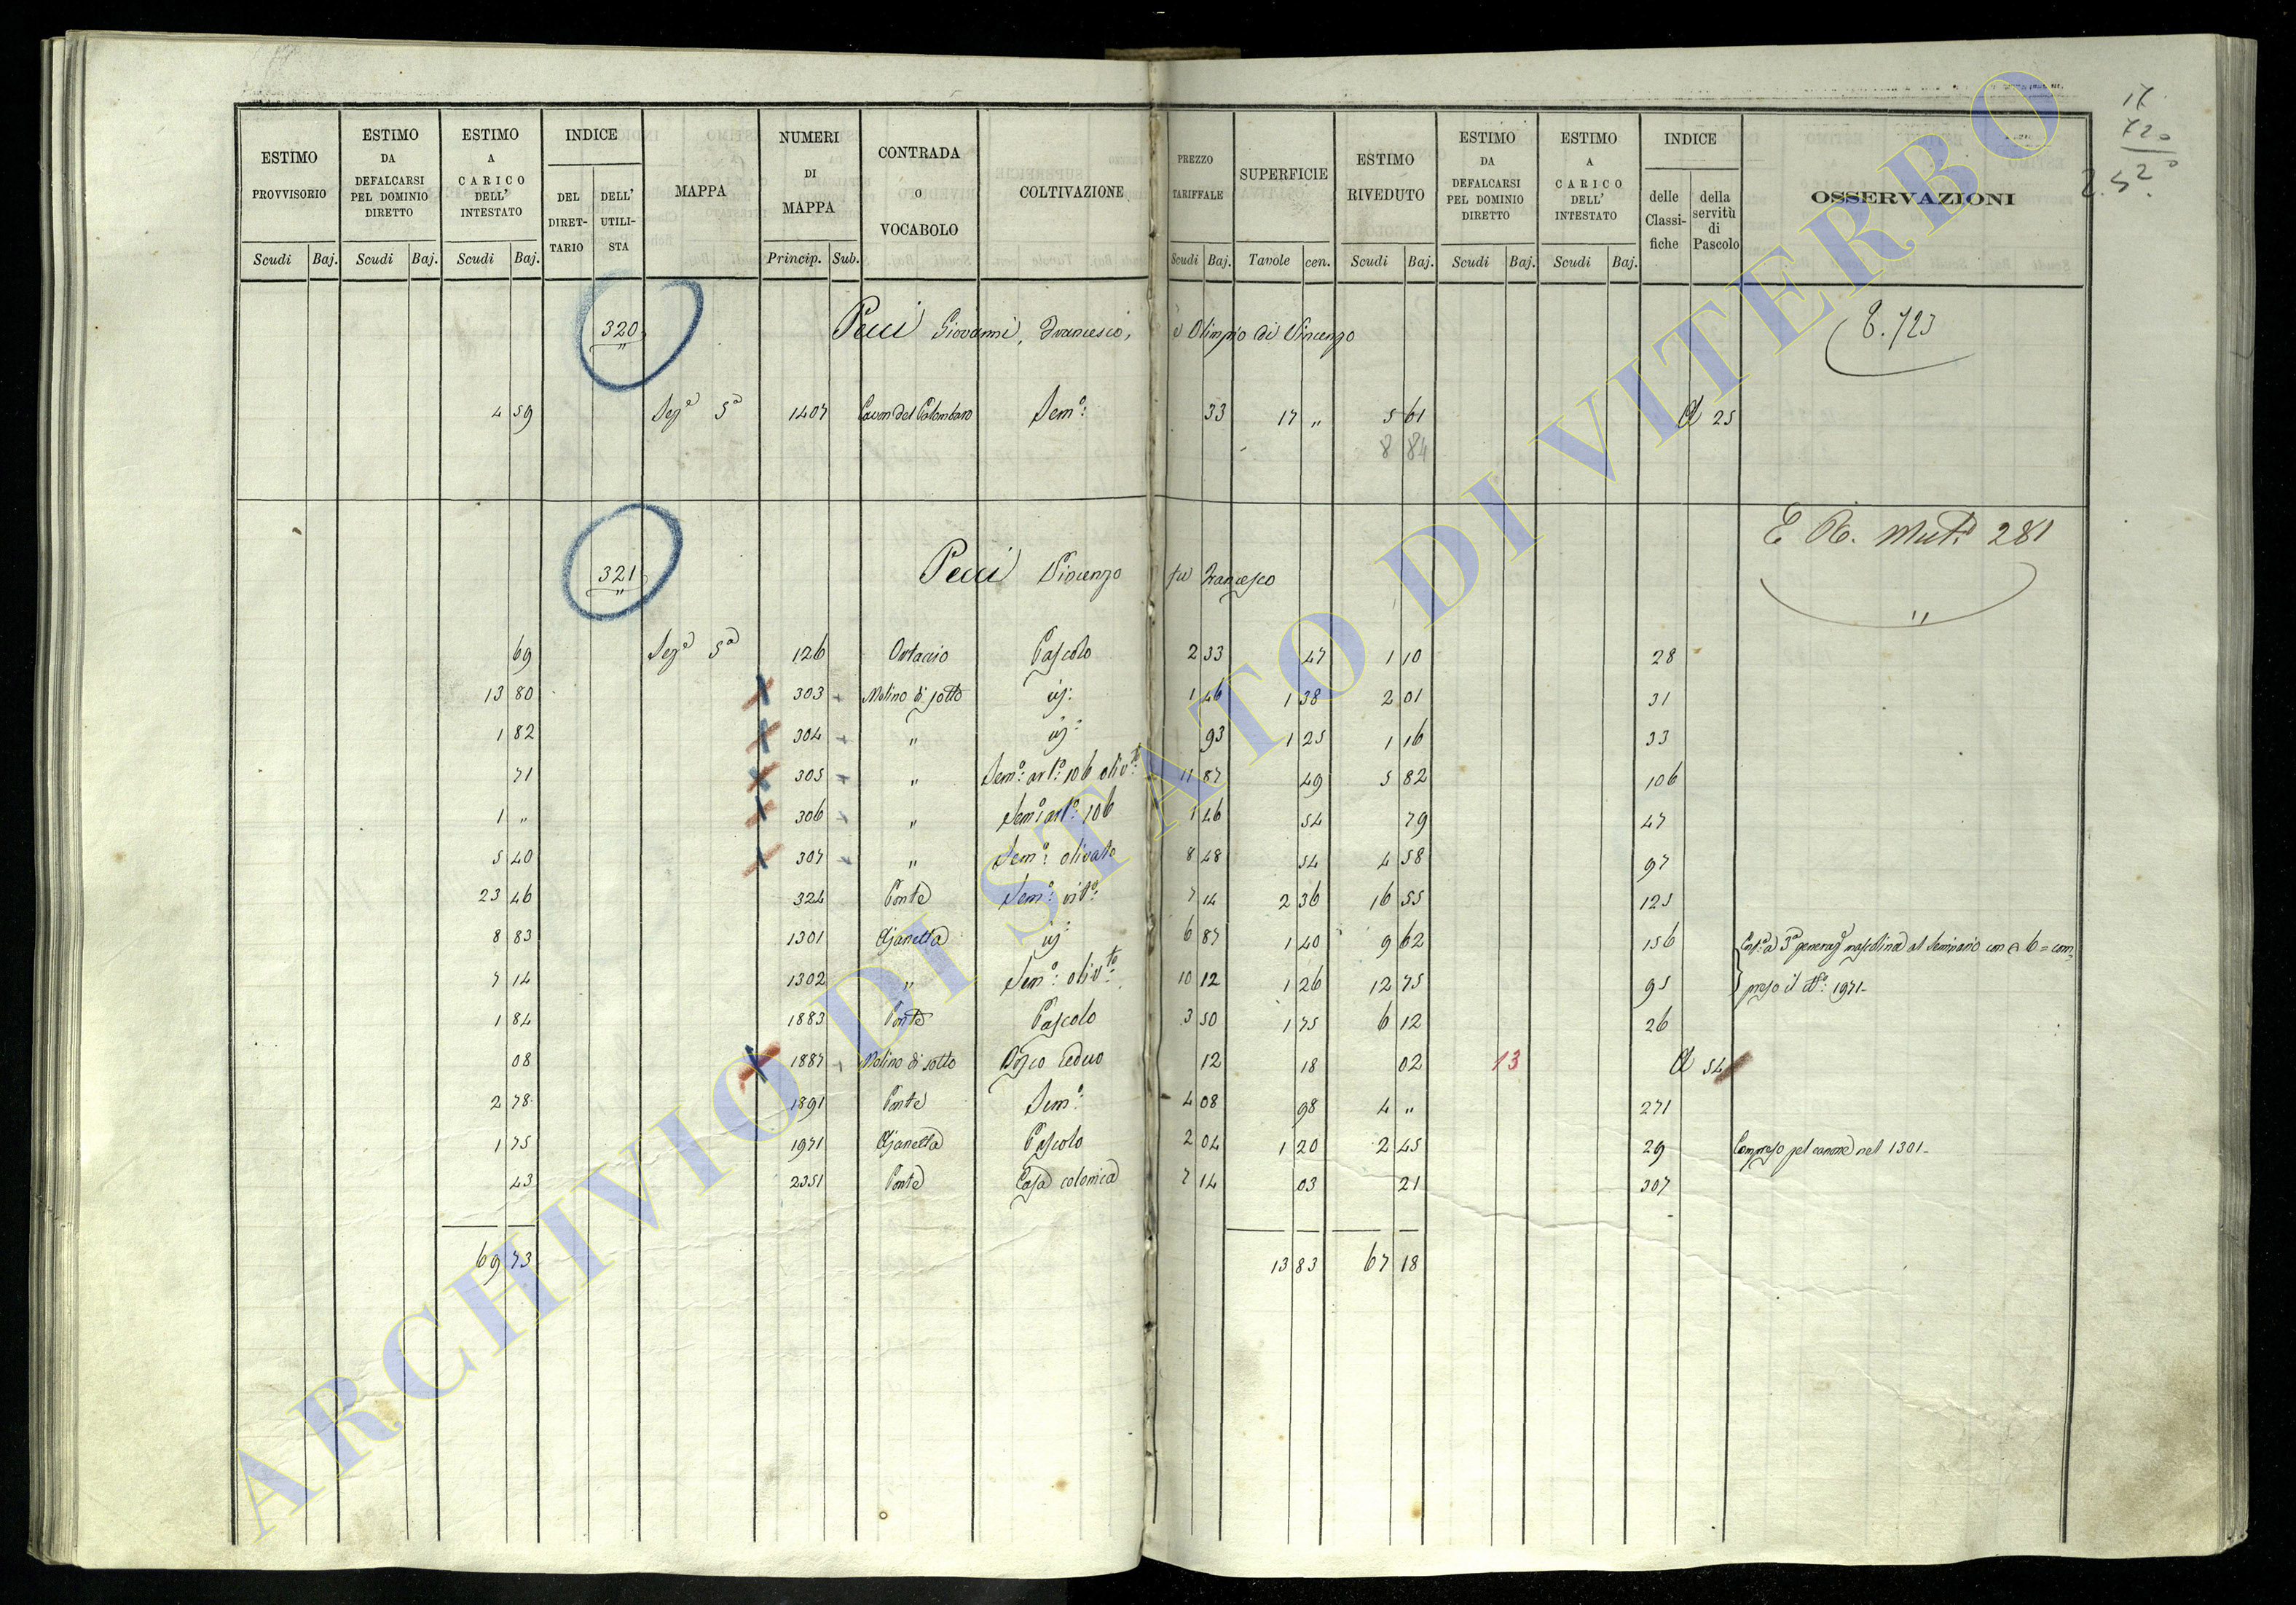 17
720
2.52
ESTIMO PROVVISORIO Scudi Baj.
ESTIMO DA DEFALCARSI PEL DOMINIO DIRETTO Scudi Baj.
ESTIMO A CARICO DELL' INTESTATO Scudi Baj.
INDICE DEL DIRET-TARIO DELL' UTILI-STA
MAPPA
NUMERI DI MAPPA Princip. Sub.
CONTRADA o VOCABOLO
COLTIVAZIONE
PREZZO TARIFFALE Scudi Baj.
SUPERFICIE Tavole cen.
ESTIMO RIVEDUTO Scudi Baj.
ESTIMO DA DEFALCARSI PEL DOMINIO DIRETTO Scudi Baj.
ESTIMO A CARICO DELL' INTESTATO Scudi Baj.
INDICE delle Classi-fiche della servitù di Pascolo
OSSERVAZIONI
320 Pecci Giovanni, Francesco, e Olimpio di Vincenzo 8.723
4 59 Sez.e 5a 1407 Cavon del Colombaro Sem.o: 33 17 " 5 61 A 25
8 84
E R. Mut.a 281
"
321 Pecci Vincenzo fu Francesco
69 Sez.e 5a 126 Ortaccio Pascolo 2 33 47 1 10 28
13 80 303 Molino di sotto id: 1 46 1 38 2 01 31
1 82 304 " id: 93 1 25 1 16 33
71 305 " Sem.o: art.o: 106 oliv.to 11 87 49 5 82 106
1 " 306 " Sem.o art.o: 106 1 46 54 79 47
5 40 307 " Sem.o: olivato 8 48 54 4 58 97
23 46 324 Ponte Sem.o: vit.o: 7 14 2 36 16 55 125
8 83 1301 Gjanetta id: 6 87 1 40 9 62 156 a 3a generaz. mascolina al Seminario con 6 = com=
7 14 1302 " Sem.o: oliv.to 10 12 1 26 12 75 95 preso il N.o: 1971-
1 84 1883 Ponte Pascolo 3 50 1 75 6 12 26
08 1887 Molino di sotto Bosco ceduo 12 18 02 13 A 54
2 78 1891 Ponte Sem.o: 4 08 98 4 " 271
1 75 1971 Gjanetta Pascolo 2 04 1 20 2 45 29 Compreso pel canone nel 1301-
43 2351 Ponte Casa colonica 7 14 03 21 307
69 73 13 83 67 18
ARCHIVIO DI STATO DI VITERBO